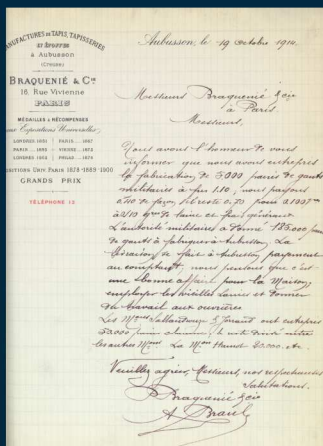 MANUFACTURES DE TAPIS, TAPISSERIES
ET ÉTOFFES
à Aubusson
(CREUSE)
BRAQUENIÉ & Cie
16 Rue Vivienne
PARIS
MÉDAILLES & RÉCOMPENSES
aux Expositions Universelles
LONDRES 1851 PARIS 1867
PARIS 1855 VIENNE 1873
LONDRES 1862 PHILAD. 1876
EXPOSITIONS UNIV. PARIS 1878-1889-1900
GRANDS PRIX
TÉLÉPHONE
Aubusson, le 19 Octobre 1914.
Messieurs Braquenié & cie
à Paris.
Messieurs,
Nous avons l'honneur de vous
informer que nous avons entrepris
la fabrication de 5000 paires de gants
militaires à frs 1.50, nous payons
de façon, il reste 0,70 pour
de laine et frais généraux
L'autorité militaire a donné 185,000 paires
de gants à fabriquer à Aubusson. La
livraison se fait à Aubusson, payement
au comptant, nous pensons que c'est
une bonne affaire pour la Maison,
employer les vieilles laines et donner
du travail aux ouvrières
Les Mons Sallandrouze & Jorrand ont entrepris
50,000 le reste divisé entre
les autres Mons La Mon Hamot 20.000. etc
Veuillez agréer, Messieurs, nos respectueuses
Salutations.
Braquenié & cie